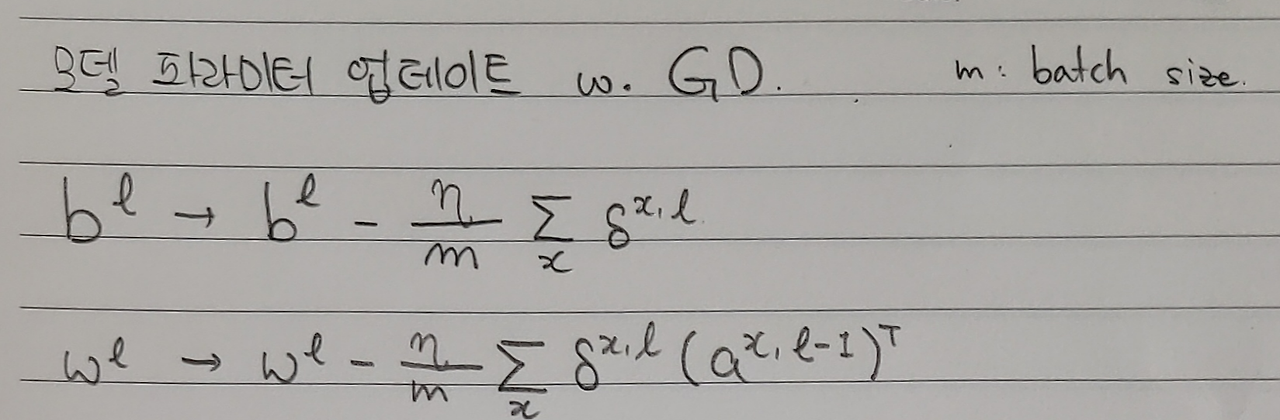 모델 파라미터 업데이트 w. GD. m: batch size.
b^l → b^l - η/m Σ_x δ^{x,l}
w^l → w^l - η/m Σ_x δ^{x,l} (a^{x,l-1})^T